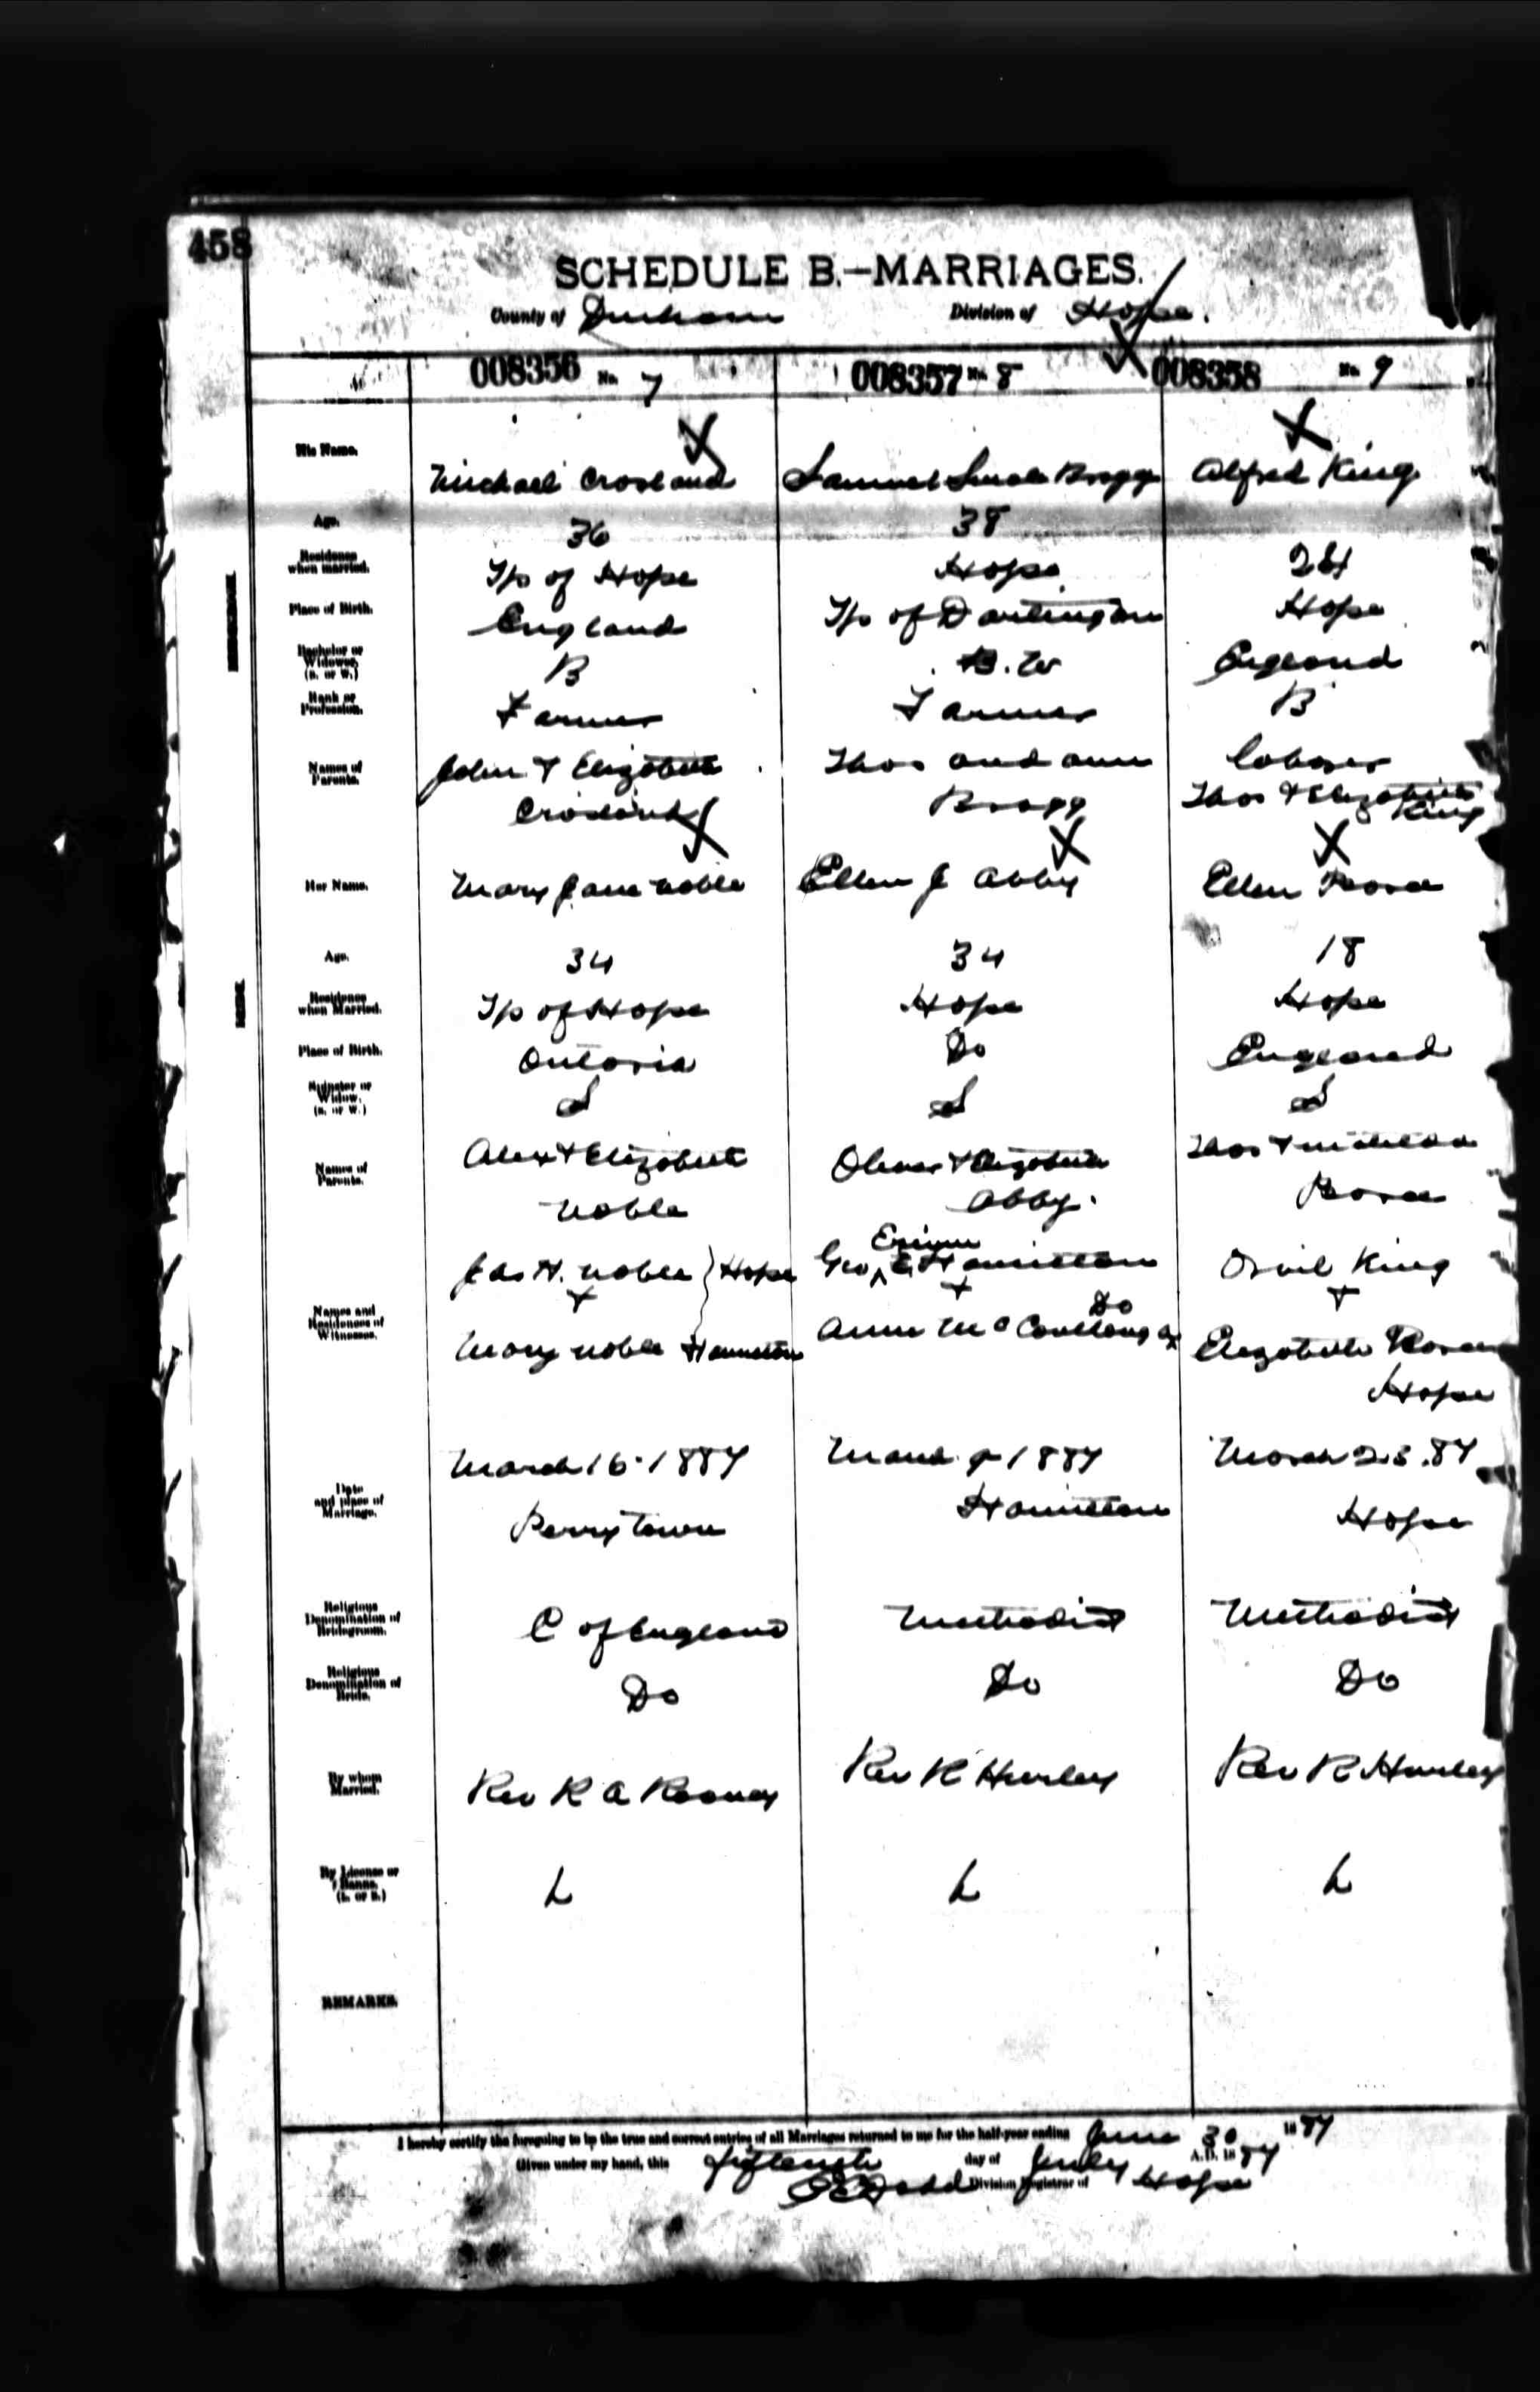 458
SCHEDULE B.—MARRIAGES.
County of Durham Division of Hope.
008356 No. 7 008357 No. 8 008358 No. 9
His Name. Michael Crosland Samuel Bragg Alfred King
Age. 36 38 24
Residence when married. Tp of Hope Hope Hope
Place of Birth. England Tp of Darlington England
Bachelor or Widower. (B. or W.) B B. W B
Rank or Profession. Farmer Farmer Laborer
Names of Parents. John & Elizabeth Thos and Ann Thos & Elizabeth
Crosland Bragg King
Her Name. Mary Jane Noble Ellen J Abby Ellen
Age. 34 34 18
Residence when Married. Tp of Hope Hope Hope
Place of Birth. Ontario Do England
Spinster or Widow. (S. or W.) S S S
Names of Parents. Alex & Elizabeth Oliver & Elizabeth Thos &
Noble Abby.
Names and Residences of Witnesses. Jas H. Noble } Hope Geo E Hamilton Orvil King
+ + +
Do
Mary Noble Hamilton Ann Elizabeth
Hope
Date and place of Marriage. March 16 · 1887 March 9 1887 March 23. 87
Perrytown Hamilton Hope
Religious Denomination of Bridegroom. C of England Methodist Methodist
Religious Denomination of Bride. Do Do Do
By whom Married. Rev R A Rooney Rev R Hurley Rev R Hurley
By License or Banns. (L. or B.) L L L
REMARKS.
I hereby certify the foregoing to be the true and correct entries of all Marriages returned to me for the half-year ending June 30 1887
Given under my hand, this fifteenth day of July A.D. 1887
Division Registrar of Hope